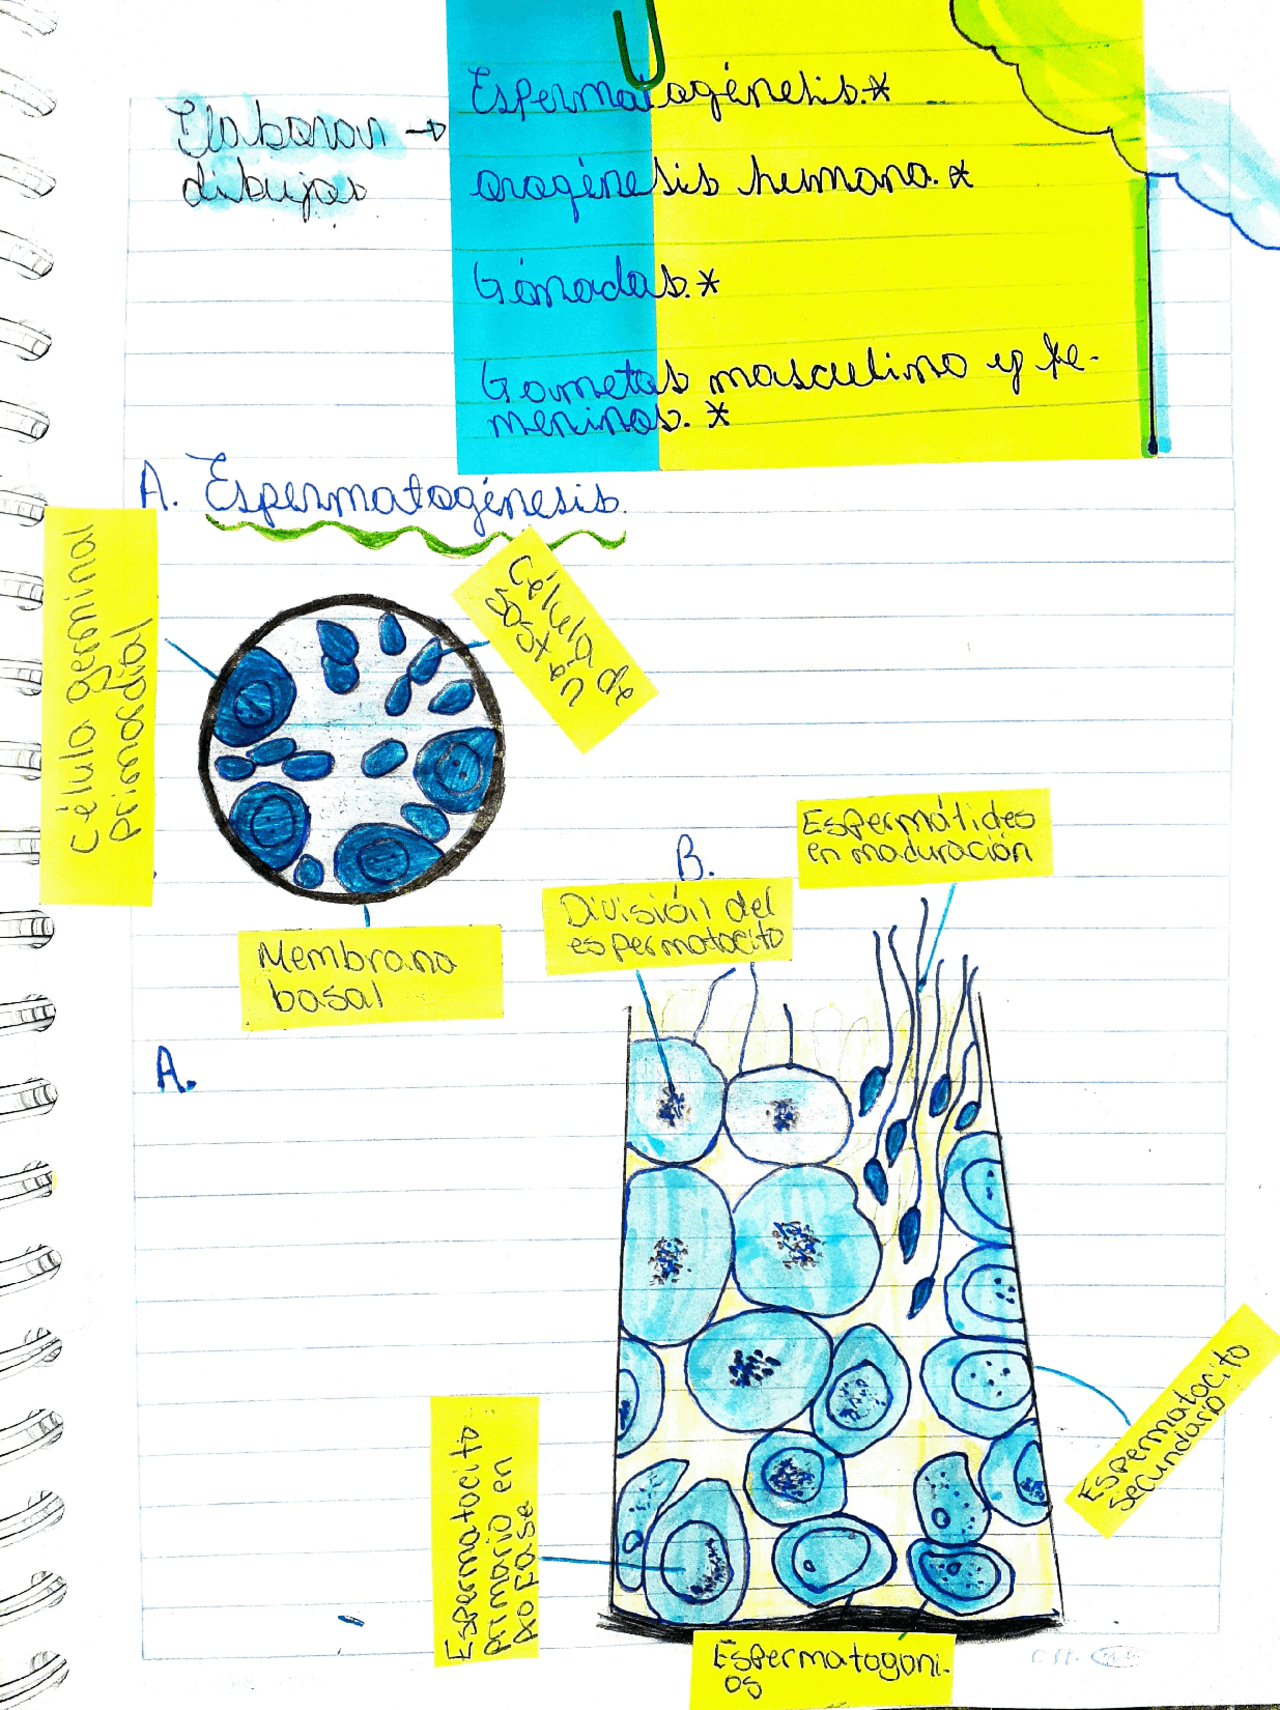 Elaborar →
dibujos
Espermatogénesis.*
ovogénesis humana.*
Gónadas.*
Gametos masculino y fe-
meninos.*
A. Espermatogénesis.
Célula germinal
primordial
Célula de
sostén
Membrana
basal
A.
B.
Espermátides
en maduración
División del
espermatocito
Espermatocito
secundario
Espermatocito
primario en
profase
Espermatogoni-
os